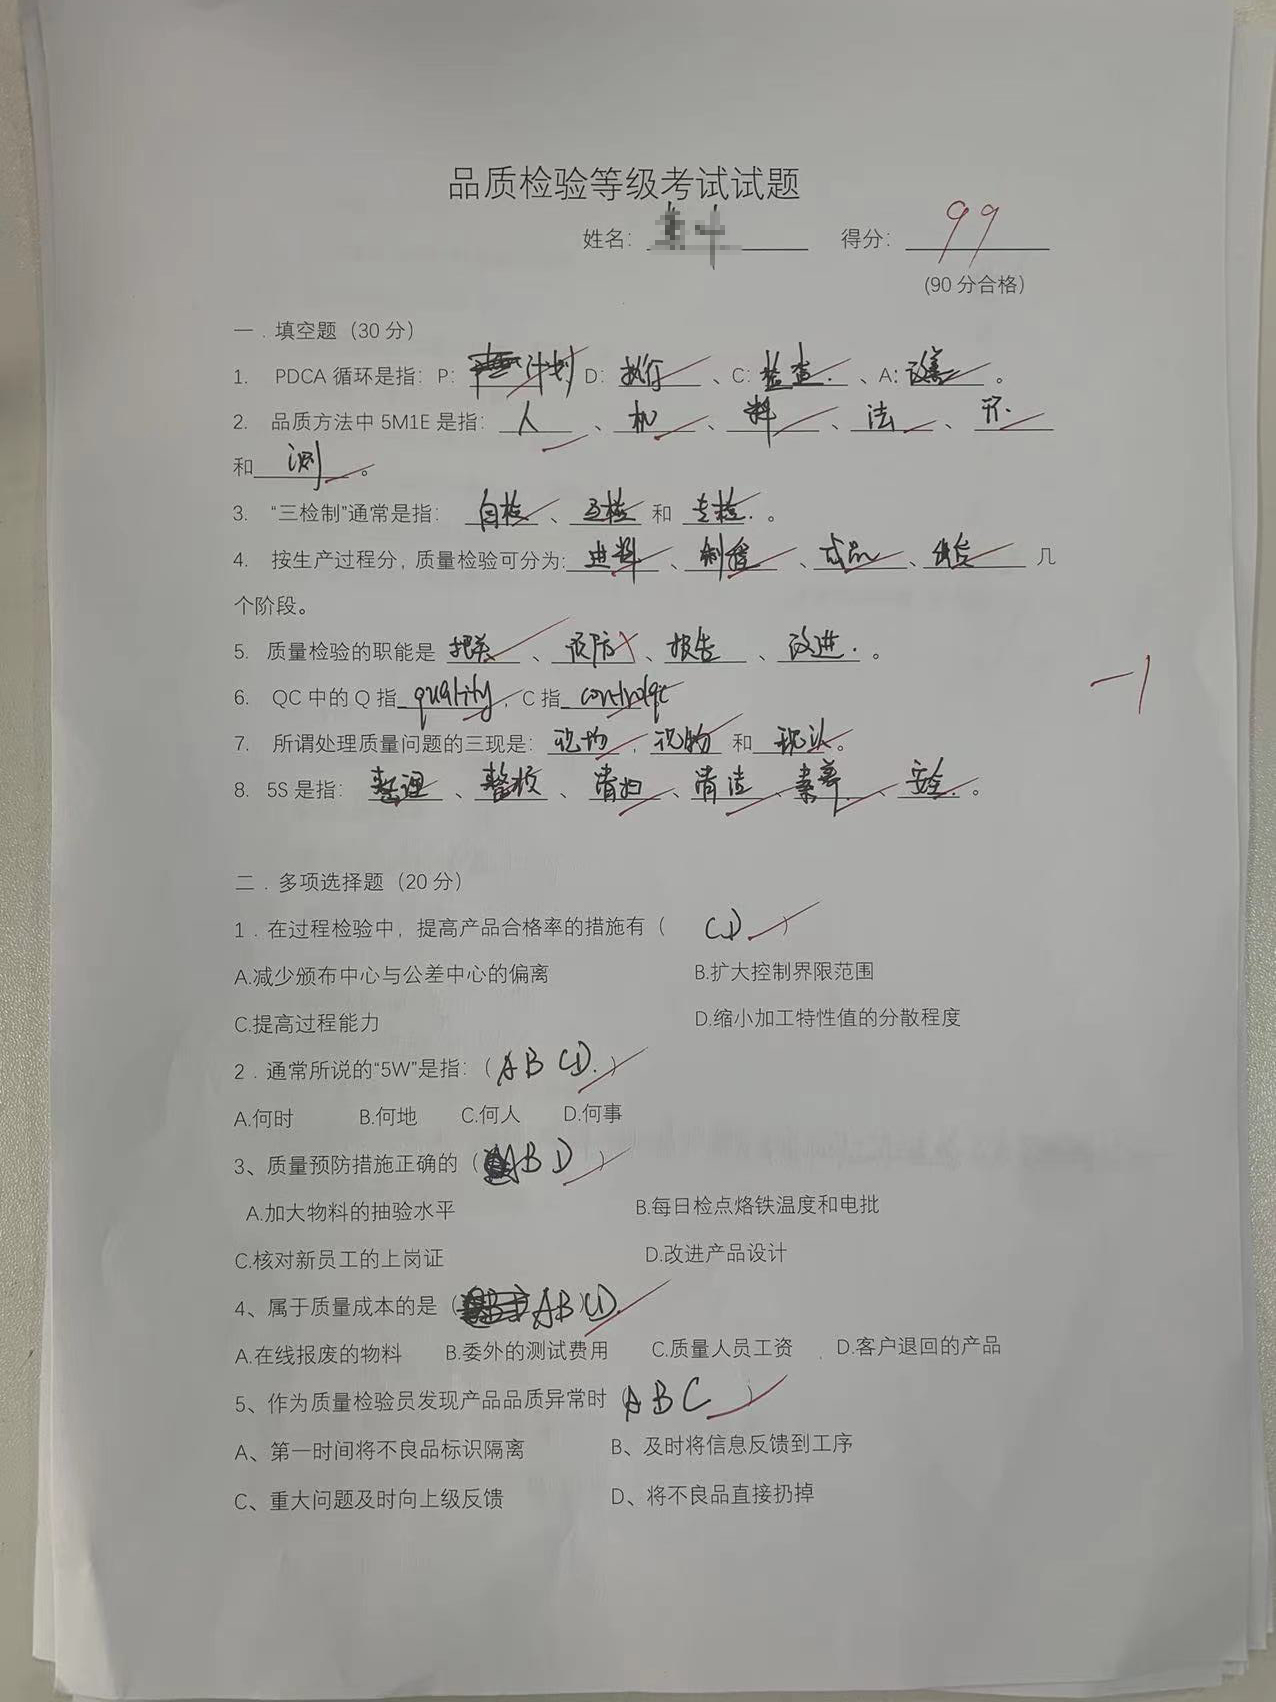 品质检验等级考试试题
姓名： 得分： 99
(90 分合格)
一．填空题（30 分）
1. PDCA 循环是指：P: 计划 D: 执行 、C: 检查. 、A: 改善 。
2. 品质方法中 5M1E 是指： 人 、 机 、 料 、 法 、 环.
和 测 。
3. “三检制”通常是指： 自检 、 互检 和 专检. 。
4. 按生产过程分，质量检验可分为: 进料 、 制程 、 成品 、 几
个阶段。
5. 质量检验的职能是 把关 、 预防 、 报告 、 改进. 。
-1
6. QC 中的 Q 指 quality ，C 指
7. 所谓处理质量问题的三现是： 现场 ， 现物 和 现认 。
8. 5S 是指： 整理 、 整顿 、 清扫 、 清洁 、 素养 、 安全. 。
二．多项选择题（20 分）
1．在过程检验中，提高产品合格率的措施有（ CD ）
A.减少颁布中心与公差中心的偏离 B.扩大控制界限范围
C.提高过程能力 D.缩小加工特性值的分散程度
2．通常所说的“5W”是指：（ABCD.）
A.何时 B.何地 C.何人 D.何事
3、质量预防措施正确的（ABD ）
A.加大物料的抽验水平 B.每日检点烙铁温度和电批
C.核对新员工的上岗证 D.改进产品设计
4、属于质量成本的是（ AB）CD.
A.在线报废的物料 B.委外的测试费用 C.质量人员工资 . D.客户退回的产品
5、作为质量检验员发现产品品质异常时（ABC ）
A、第一时间将不良品标识隔离 B、及时将信息反馈到工序
C、重大问题及时向上级反馈 D、将不良品直接扔掉